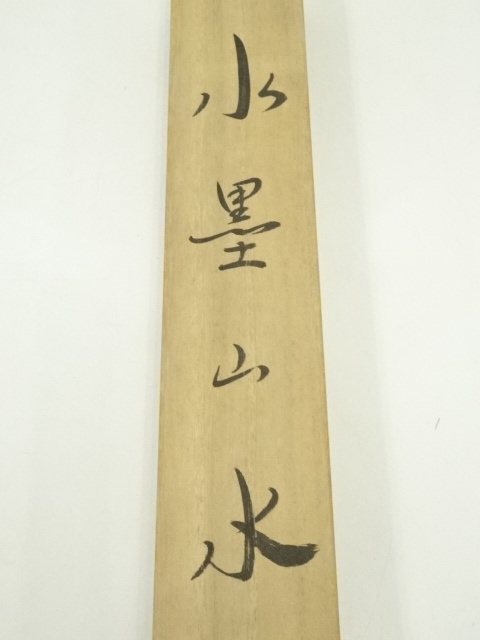 水墨山水